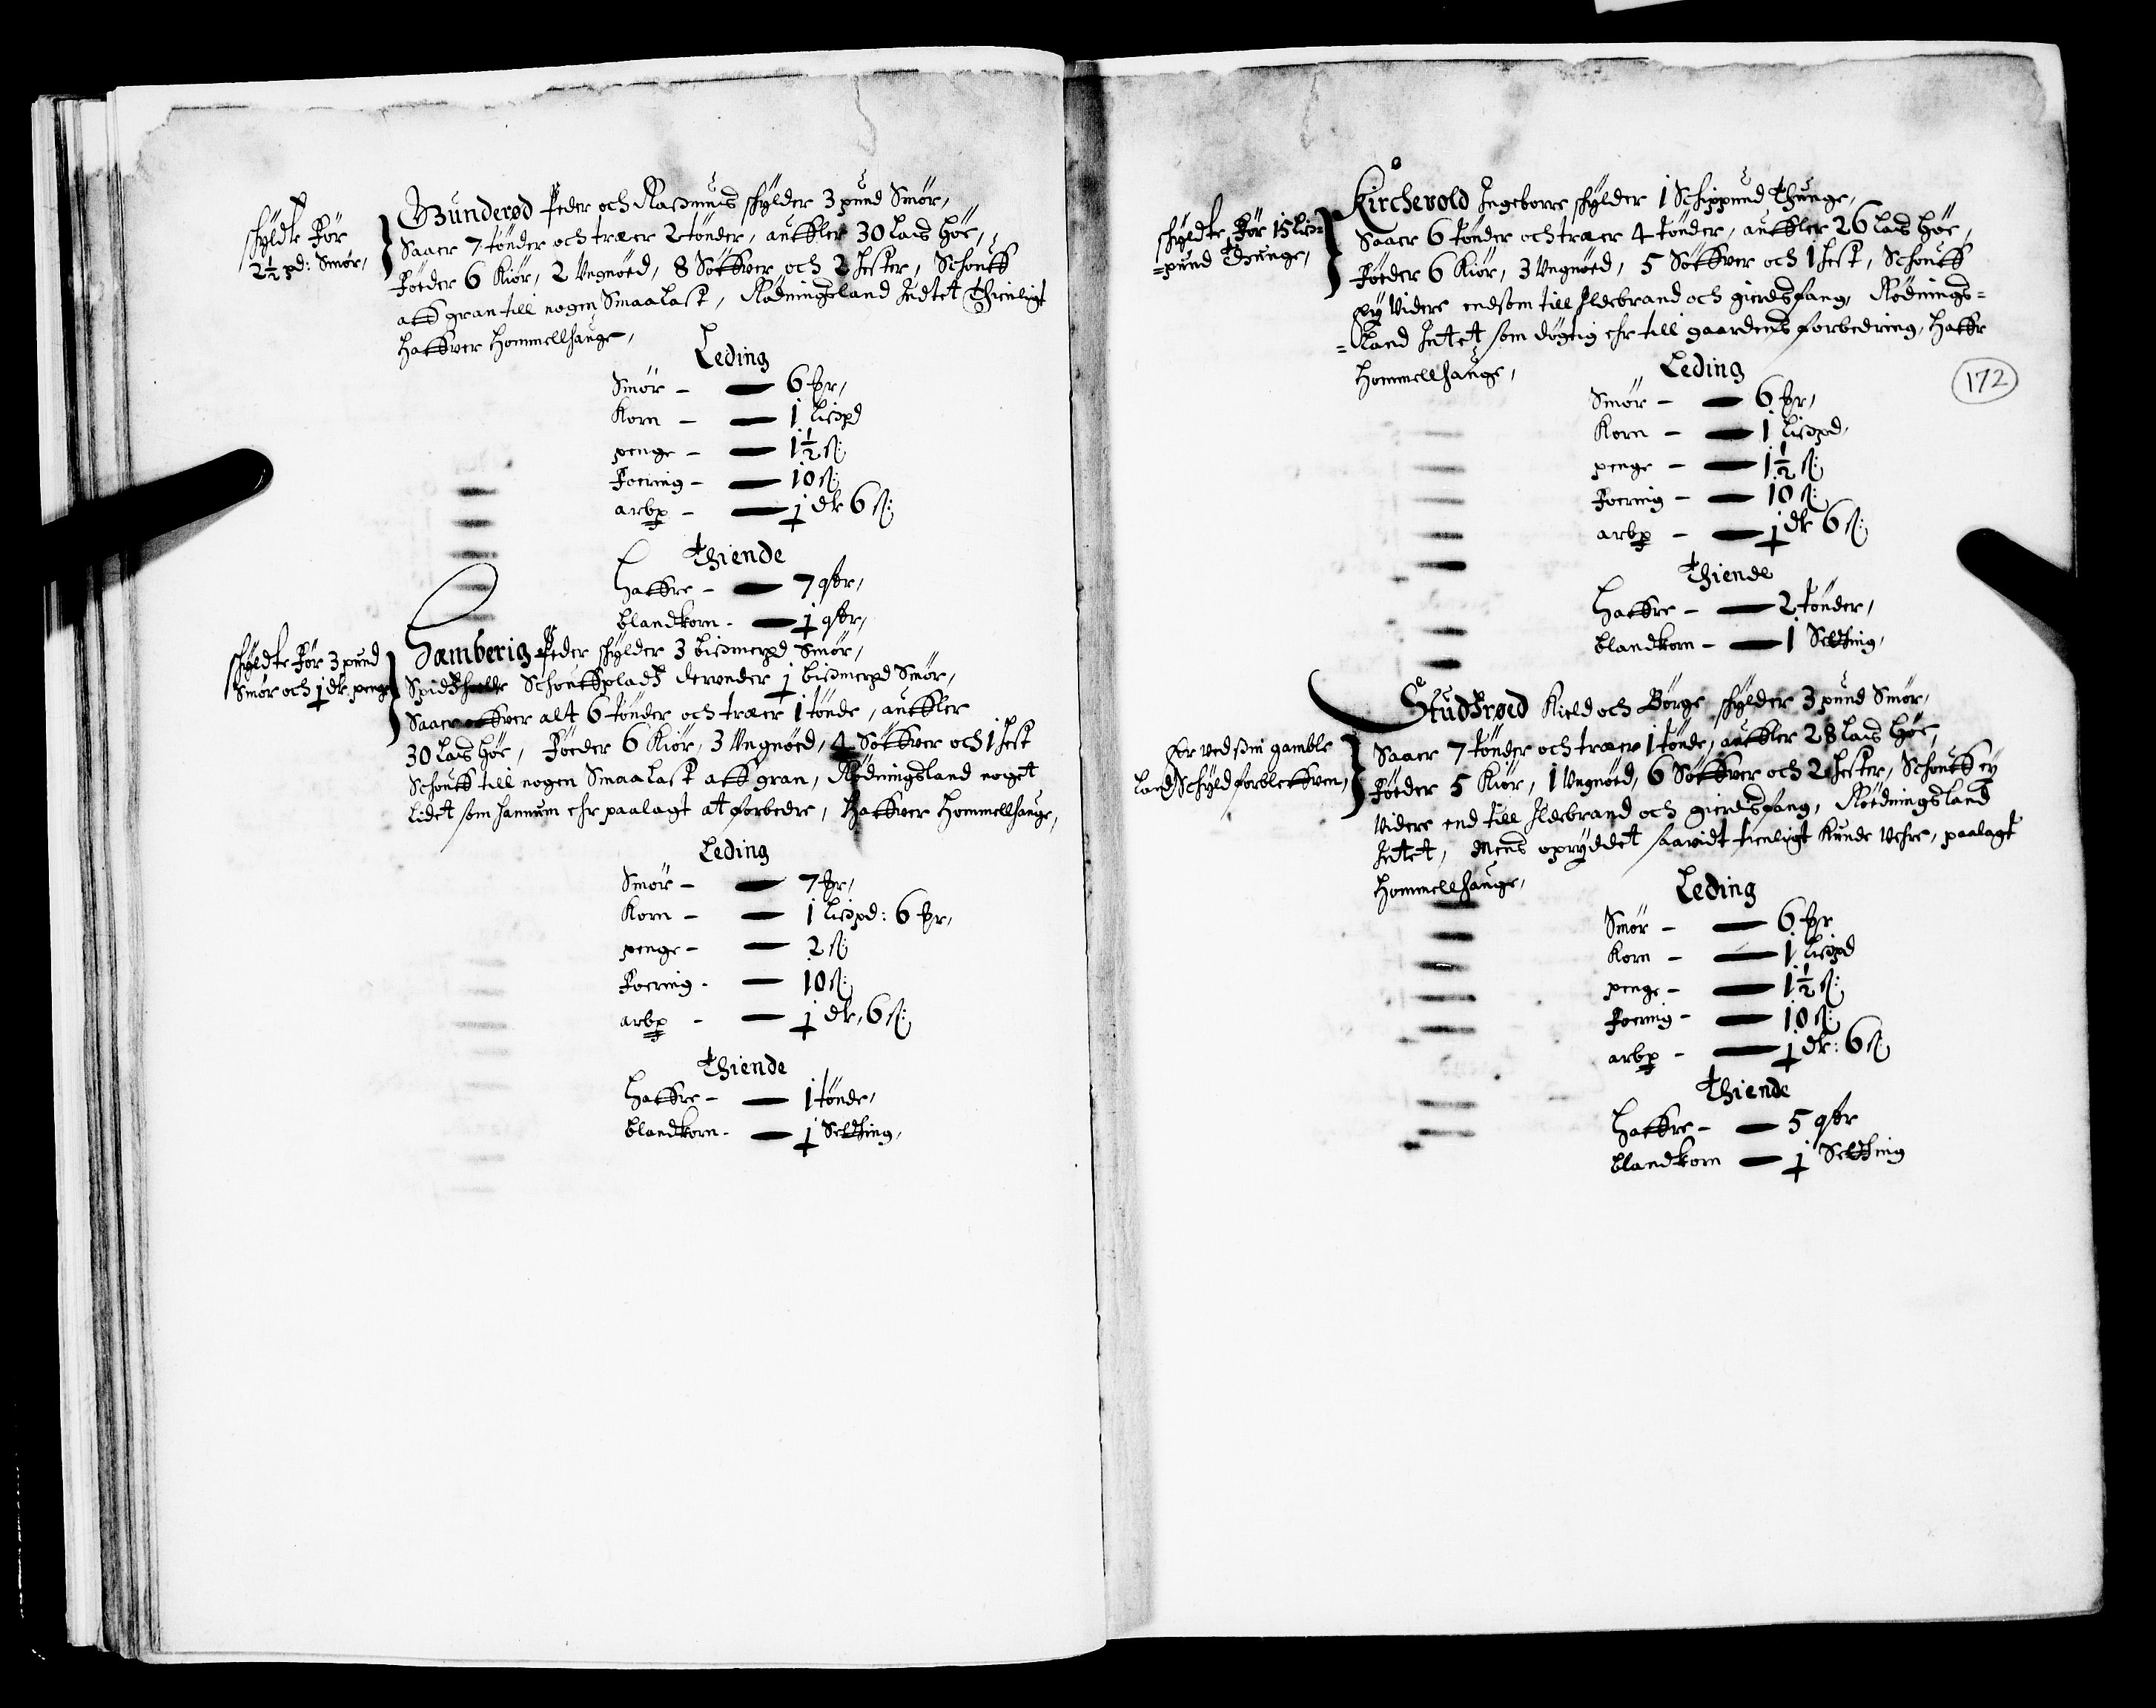 schyldte Før
2½ pd: Smør,
Gunderød Peder och Rasmus schylder 3 pund Smør,
Saaer 7 tønder och træer 2 tønder, aufler 30 Las Høe,
Føeder 6 Kiør, 2 Ungnøed, 8 Søffver och 2 Hester, Schouff
aff gran till nogen Smaa Last, Rødningsland Indtet Thienligt
Haffver Hommellhauge,
Leding
Smør – 6 ₥r,
Korn – 1 Lispd
penge – 1½ ß:
Foering – 10 ß:
arbp – 1 dlr 6 ß:
Thiende
Haffre – 7 qtr,
blandkorn – 1 qtr,
schyldte Før 3 pund
Smør och 1 dlr penge
Hamberig Peder schylder 3 bismerpd Smør,
Schouffpladz derunder 1 bismerpd Smør,
Saaer offver alt 6 tønder och træer 1 tønde, aufler
30 Las Høe, Føeder 6 Kiør, 3 Ungnøed, 4 Søffver och 1 Hest
Schouff till nogen Smaa Last aff gran, Rødningsland noget
Lidet som hannum ehr paalagt at forbedre, Haffver Hommellhauge,
Leding
Smør – 7 ₥r,
Korn – 1 Lispd: 6 ₥r,
penge – 2 ß:
Foering – 10 ß:
arbp – 1 dlr, 6 ß:
Thiende
Haffre – 1 tønde,
blandkorn – 1 Setting,
172
schyldte Før 15 Lis=
=pund Thunge,
Kirchevold Ingeborre schylder 1 Schippund Thunge,
Saaer 6 tønder och træer 4 tønder, aufler 26 Las Høe,
Føeder 6 Kiør, 3 Ungnøed, 5 Søffver och 1 Hest, Schouff
ey Videre endsom till Ildebrand och gierdsfang, Rødnings=
=Land Intet som døgtig ehr till gaardens forbedring, Haffr
Hommellhauge,
Leding
Smør – 6 ₥r,
Korn – 1 Lispd,
penge – 1½ ß:
Foering – 10 ß:
arbp – 1 dlr 6 ß:
Thiende
Haffre – 2 tønder,
blandkorn – 1 Setting,
Er ved sin gamble
Landschyld forbleffven,
Studtrøed Kield och Børge schylder 3 pund Smør,
Saaer 7 tønder och træer 1 tønde, aufler 28 Las Høe,
Føeder 5 Kiør, 1 Ungnøed, 6 Søffver och 2 Hester, Schouff ey
Videre end till Ildebrand och gierdsfang, Rødningsland
Intet, Mens opryddet saavidt tienligt Kunde Vehre, paalagt
Hommellhauge,
Leding
Smør – 6 ₥r
Korn – 1 Lispd
penge – 1½ ß:
Foering – 10 ß:
arbp – 1 dlr: 6 ß:
Thiende
Haffre – 5 qtr
blandkorn – 1 Setting